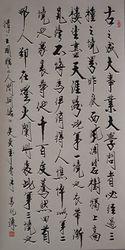 古之成大事業大學問者必經過三
種之境界昨夜西風凋碧樹獨上高
樓望盡天涯路此第一境也衣帶漸
寬終不悔為伊消得人憔悴此第二
境也衆裏尋他千百度驀然回首
那人却在燈火闌珊處此第三境也
王國維人間詞話